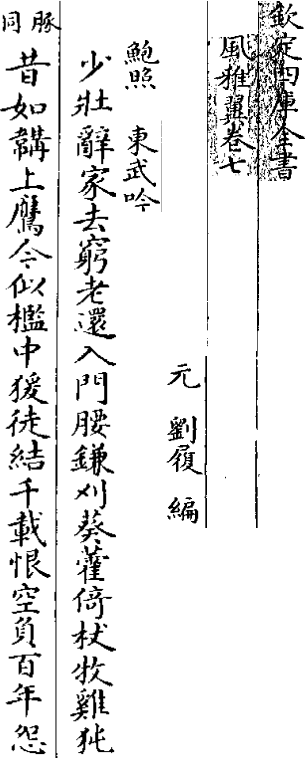 欽定四庫全書
風雅翼卷七
元 劉履 編
鮑照 東武吟
少壯辭家去窮老還入門腰鎌刈葵藿倚杖牧雞㹠
豚同
昔如韝上鷹今似檻中猨徒結千載恨空負百年怨